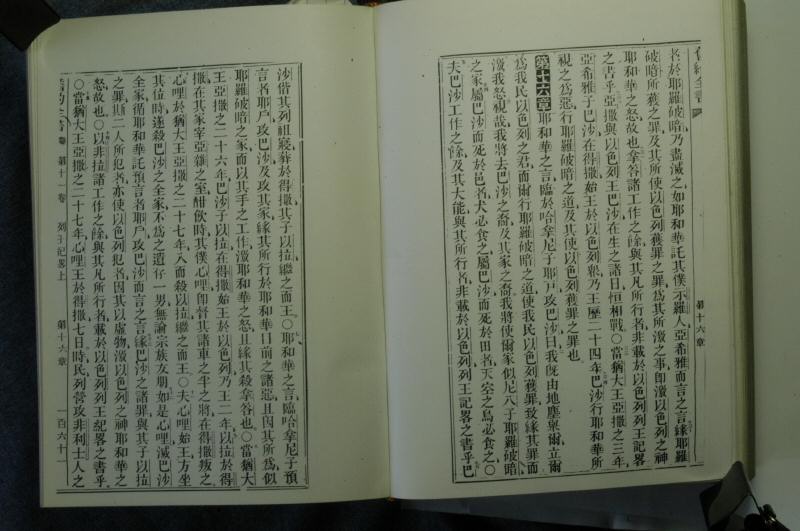 舊約全書
第十六章
者於耶羅破暗乃盡滅之如耶和華託其僕示羅人亞希雅而言之言緣耶羅
破暗所獲之罪及其所使以色列獲罪之罪爲其所激之事即激以色列之神
耶和華之怒故也拿答諸工作之餘與其凡所行者非載於以色列列王記畧
之書乎亞撒與以色列王巴沙在生之諸日恒相戰〇當猶大王亞撒之三年
亞希雅子巴沙在得撒始王於以色列衆乃王歷二十四年巴沙行耶和華所
視之爲惡行耶羅破暗之道及其使以色列獲罪之罪也
第十六章耶和華之言臨於哈拿尼子耶戸攻巴沙曰我旣由地塵舉爾立爾
爲我民以色列之君而爾行耶羅破暗之道使我民以色列獲罪致緣其罪而
激我怒視哉我將去巴沙之裔及其家之裔我將使爾家似尼八子耶羅破暗
之家屬巴沙而死於邑者犬必食之屬巴沙而死於田者天空之鳥必食之〇
夫巴沙工作之餘及其大能與其所行者非載於以色列列王記畧之書乎巴
沙偕其列祖寢葬於得撒其子以拉繼之而王〇耶和華之言臨哈拿尼子預
言者耶戸攻巴沙及攻其家緣其所行於耶和華目前之諸惡且因其所爲似
耶羅破暗之家而以其手之工作激耶和華之怒且緣其殺拿答也〇當猶大
王亞撒之二十六年巴沙子以拉在得撒始王於以色列乃王二年以拉於得
撒在其家宰亞雜之室酣飲時其僕心哩即督其諸車之半之將在得撒叛之
心哩於猶大王亞撒之二十七年入而殺以拉繼之而王〇夫心哩始王方坐
其位時遂殺巴沙之全家不爲之遺存一男無論宗族友朋如是心哩滅巴沙
全家循耶和華託預言者耶戸攻巴沙而言之言緣巴沙之諸罪與其子以拉
之罪斯二人所犯者亦使以色列犯者因其以虛物激以色列之神耶和華之
怒故也〇以拉諸工作之餘與其凡所行者載於以色列列王紀畧之書乎
〇當猶大王亞撒之二十七年心哩王於得撒七日時民列營攻非利士人之
舊約全書
第十一卷
列王紀畧上
第十六章
一百六十一